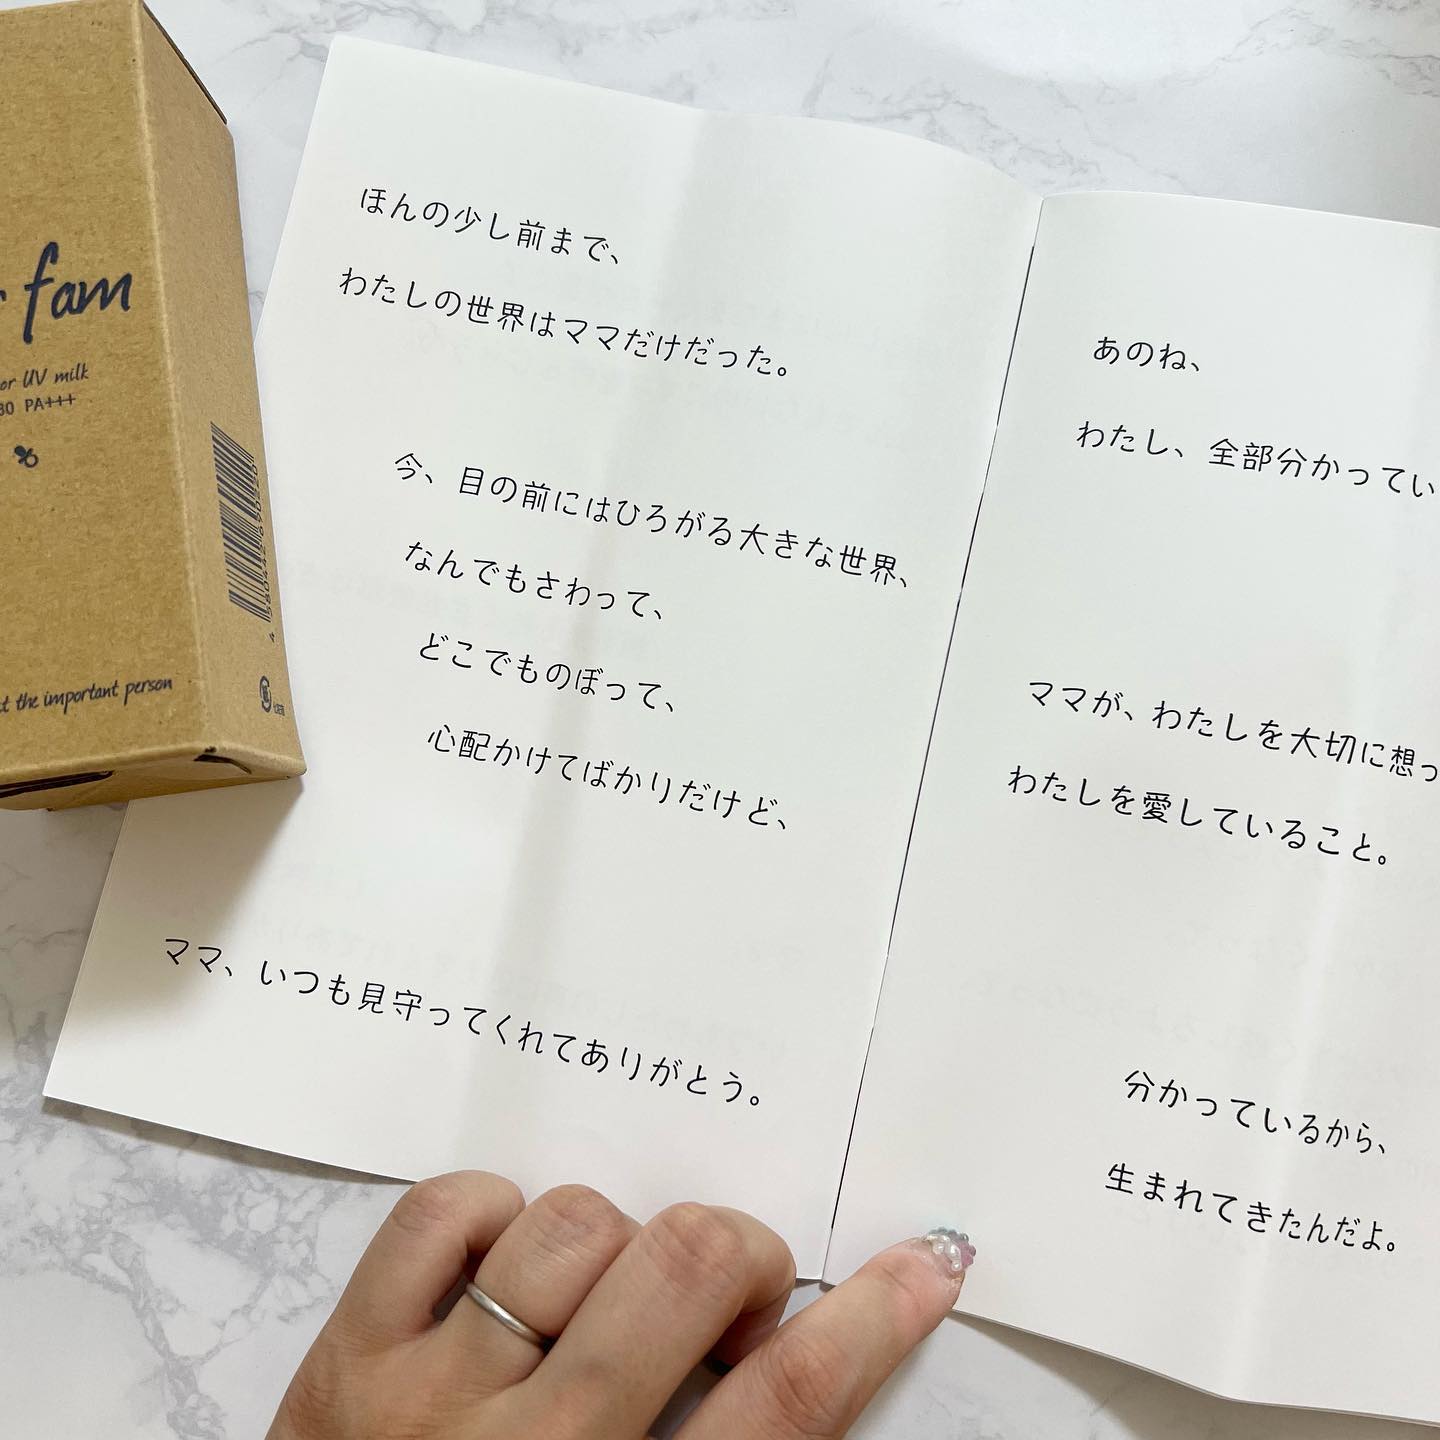 fam
or UV milk
30 PA+++
4 580442 690220
the important person
ほんの少し前まで、
わたしの世界はママだけだった。
今、目の前にはひろがる大きな世界、
なんでもさわって、
どこでものぼって、
心配かけてばかりだけど、
ママ、いつも見守ってくれてありがとう。
あのね、
わたし、全部分かってい
ママが、わたしを大切に想っ
わたしを愛していること。
分かっているから、
生まれてきたんだよ。